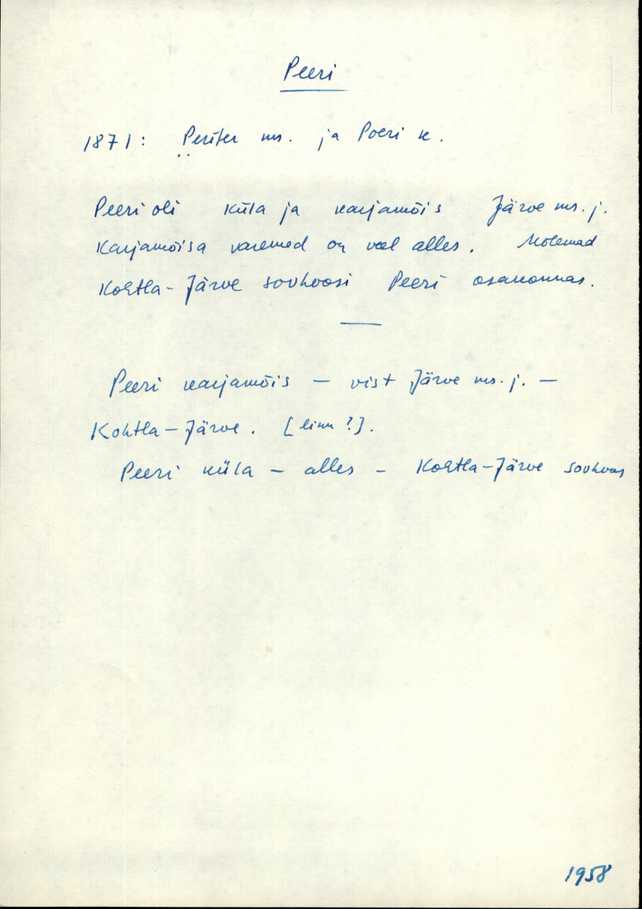 Peeri
1871: Periter ms. ja Poeri k.
Peeri oli küla ja karjamõis Järve ms. j.
Karjamõisa varemed on veel alles. Mõlemad
Kohtla-Järve sovhoosi Peeri osakonnas.
Peeri karjamõis – vist Järve ms. j. –
Kohtla-Järve. [linn?].
Peeri küla – alles – Kohtla-Järve sovhoos
1958